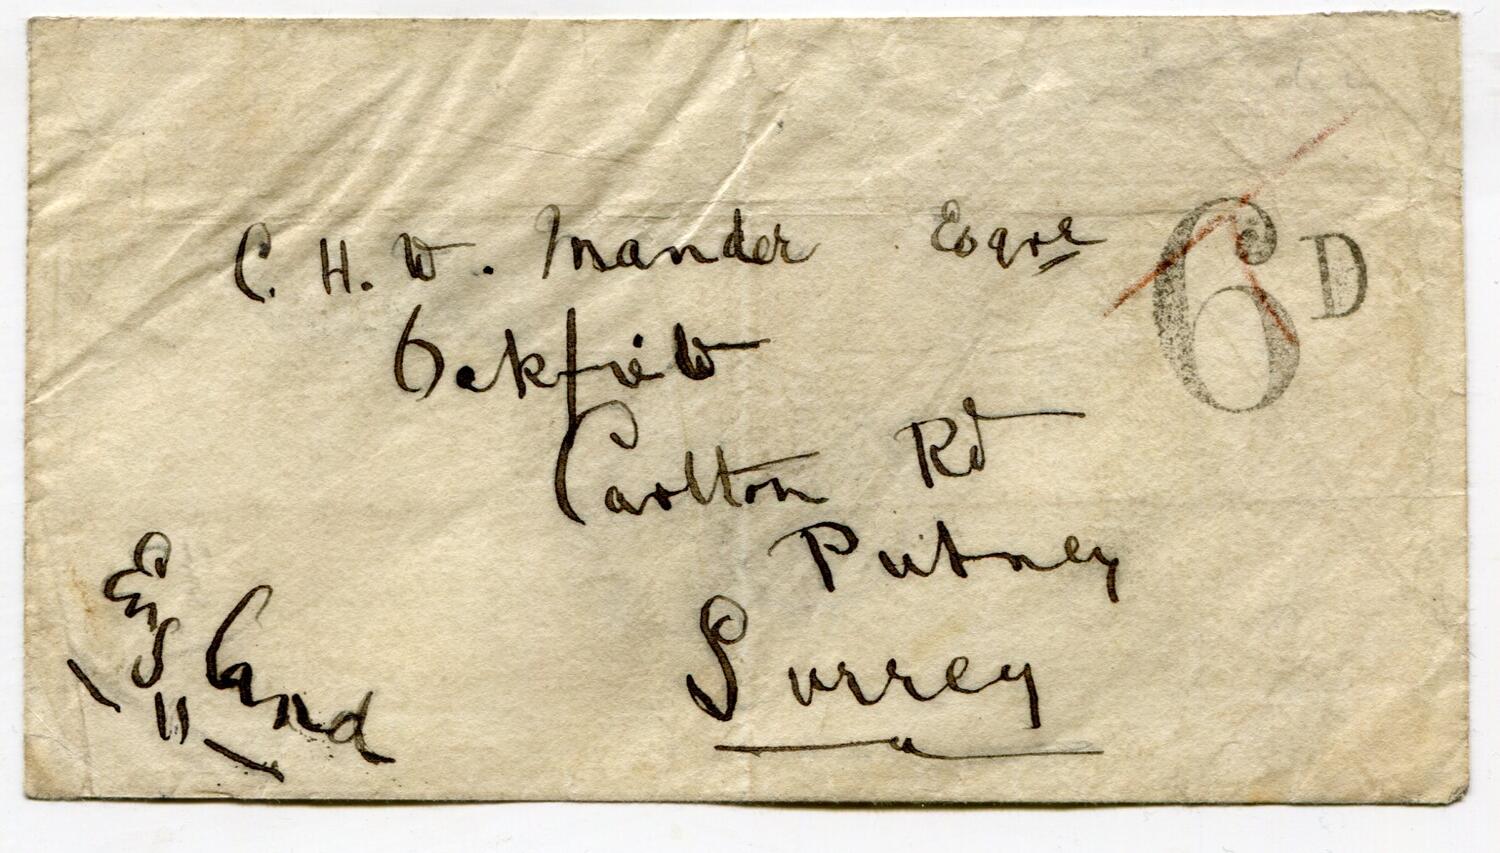 C. H. W. Mander Esqre
6D
Oakfield
Carlton Rd
Putney
Surrey
England